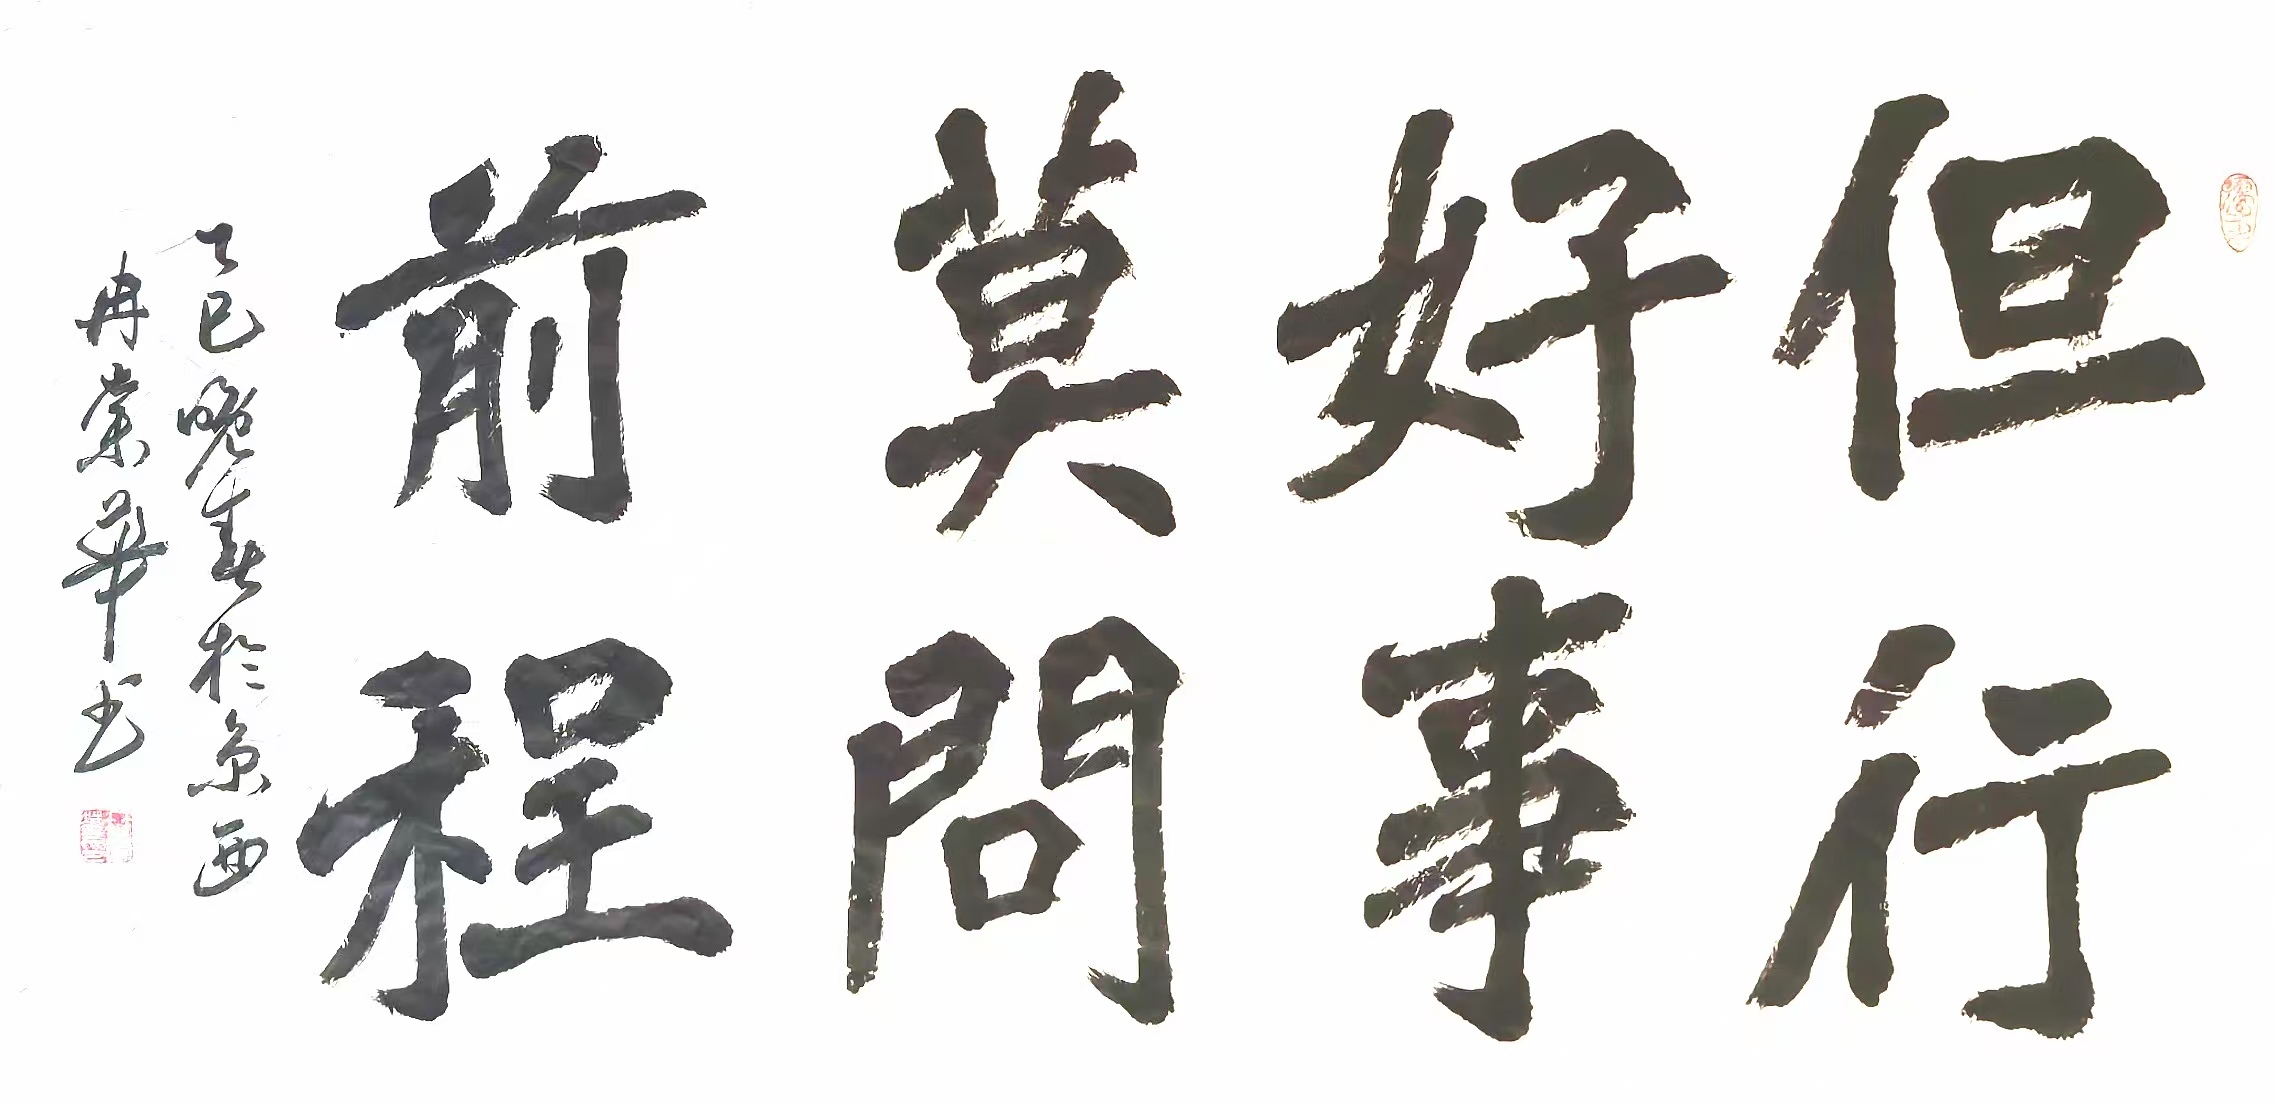 但行
好事
莫問
前程
乙巳晚春於京西
冉崇華书